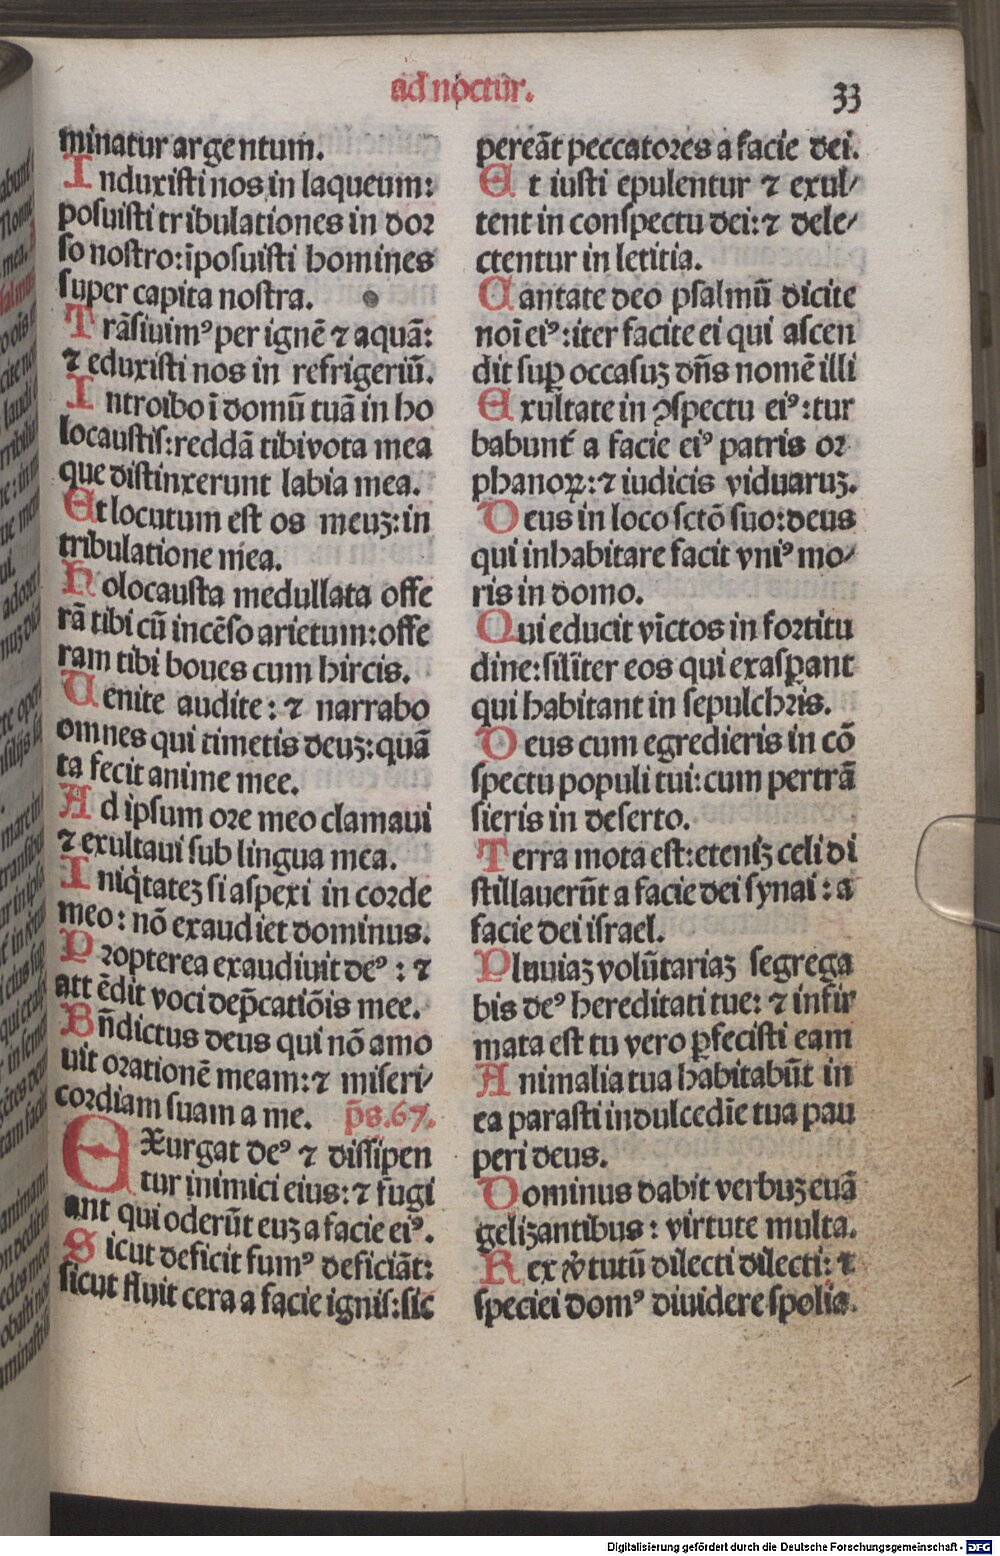 ad noctur.
33
minatur argentum.
Induxisti nos in laqueum:
posuisti tribulationes in dor
so nostro:īposuisti homines
super capita nostra.
Trāsiuimꝰ per ignē ⁊ aquā:
⁊ eduxisti nos in refrigeriū.
Introibo ī domū tuā in ho
locaustis:reddā tibi vota mea
que distinxerunt labia mea.
Et locutum est os meuꝫ:in
tribulatione mea.
Holocausta medullata offe
rā tibi cū incēso arietum:offe
ram tibi boues cum hircis.
Uenite audite: ⁊ narrabo
omnes qui timetis deuꝫ:quā
ta fecit anime mee.
Ad ipsum ore meo clamaui
⁊ exultaui sub lingua mea.
Iniq̄tateꝫ si aspexi in corde
meo: nō exaudiet dominus.
Propterea exaudiuit deꝰ: ⁊
attēdit voci dep̄catiōis mee.
Bn̄dictus deus qui nō amo
uit orationē meam:⁊ miseri/
cordiam suam a me. p̄s.67.
EXurgat deꝰ ⁊ dissipen
tur inimici eius:⁊ fugi
ant qui oderūt euꝫ a facie eiꝰ.
Sicut deficit fumꝰ deficiāt:
sicut fluit cera a facie ignis:sic
pereāt peccatores a facie dei.
Et iusti epulentur ⁊ exul/
tent in conspectu dei:⁊ dele/
ctentur in letitia.
Cantate deo psalmū dicite
noī eiꝰ:iter facite ei qui ascen
dit suꝑ occasuꝫ dn̄s nomē illi
Exultate in ꝯspectu eiꝰ:tur
babunt̄ a facie eiꝰ patris or
phanoꝝ:⁊ iudicis viduaruꝫ.
Deus in loco sctō suo:deus
qui inhabitare facit vniꝰ mo/
ris in domo.
Qui educit vīctos in fortitu
dine:silīter eos qui exasꝑant
qui habitant in sepulchris.
Deus cum egredieris in cō
spectu populi tui:cum pertrā
sieris in deserto.
Terra mota est:eteniꝫ celi di
stillauerūt a facie dei synai: a
facie dei israel.
Pluuiaꝫ volūtariaꝫ segrega
bis deꝰ hereditati tue: ⁊ infir
mata est tu vero ꝑfecisti eam
Animalia tua habitabūt in
ea parasti in dulcedīe tua pau
peri deus.
Dominus dabit verbuꝫ euā
geliꝫantibus: virtute multa.
Rex v̓tutū dilecti dilecti: ⁊
speciei domꝰ diuidere spolia.
Digitalisierung gefördert durch die Deutsche Forschungsgemeinschaft - DFG